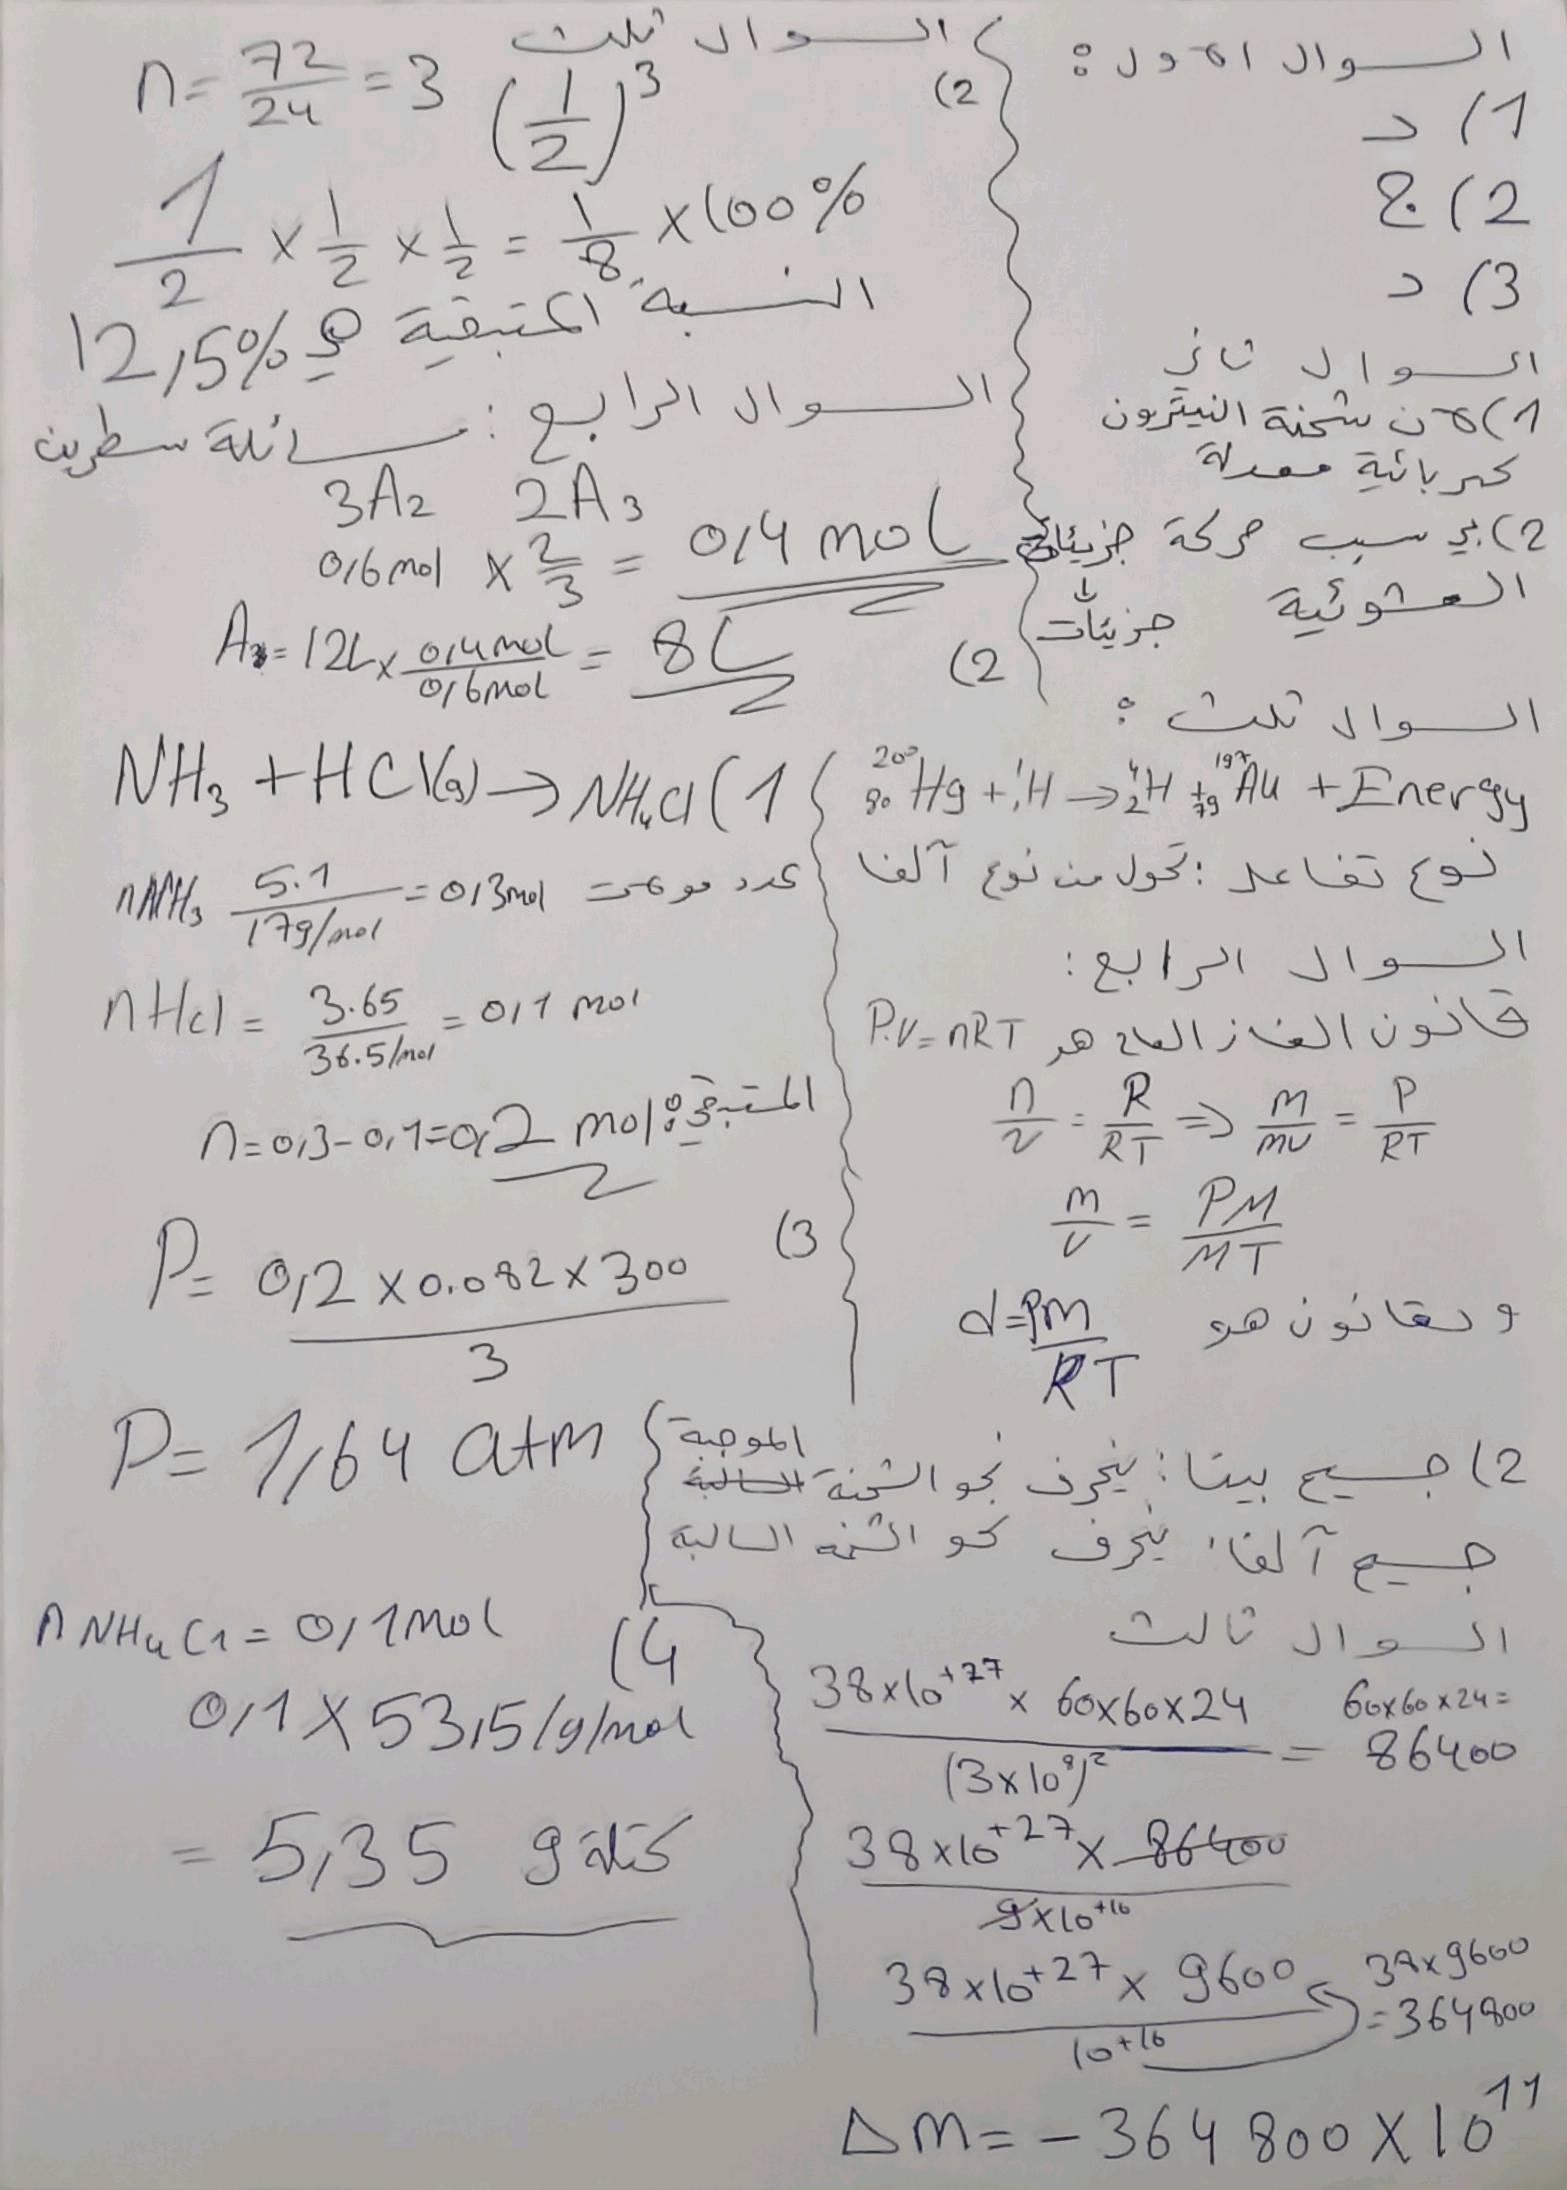 السوال الاول :
1) د
2) ج
3) د
السوال ثاني
1) لان شحنة النيترون
كهربائية معدلة
2) بي سبب حركة جزيئات
العشوئية جزيئات
السوال ثلث :
²⁰⁰₈₀Hg + ¹₁H → ⁴₂H + ¹⁹⁷₇₉Au + Energy
نوع تفاعل : تحول من نوع آلفا
السوال الرابع :
قانون الغاز العام هو P.V = nRT
n/v = R/RT ⇒ m/mv = P/RT
m/v = PM/MT
ولقانون هو d = PM/RT
2) جسيم بيتا : ينحرف نحو الشحنة السالبة الموجبة
جسيم آلفا : ينحرف نحو الشحنه السالبة
السوال ثالث
38x10⁺²⁷ x 60x60x24 / (3x10⁸)² =
60x60x24 =
86400
38x10⁺²⁷ x 86400 / 9x10⁺¹⁶
38x10⁺²⁷ x 9600 / 10⁺¹⁶
38x9600
= 364800
Δm = - 364 800 x 10¹¹
السوال ثلث
2) (1/2)³
n = 72/24 = 3
1/2 x 1/2 x 1/2 = 1/8 x 100%
النسبة المتبقية هي 12,5%
السوال الرابع : سائلة سطرين
3A₂ 2A₃
0,6 mol x 2/3 = 0,4 mol
2)
A₃ = 12L x 0,4 mol / 0,6 mol = 8L
1) NH₃ + HCl(g) → NH₄Cl
nNH₃ 5.1 / 17g/mol = 0,3 mol عدد مولات
nHcl = 3.65 / 36.5/mol = 0,1 mol
المتبقي : n = 0,3 - 0,1 = 0,2 mol
3) P = 0,2 x 0.082 x 300 / 3
P = 1,64 atm
4) n NH₄Cl = 0,1 mol
0,1 x 53,5/g/mol
= 5,35 g كتلة